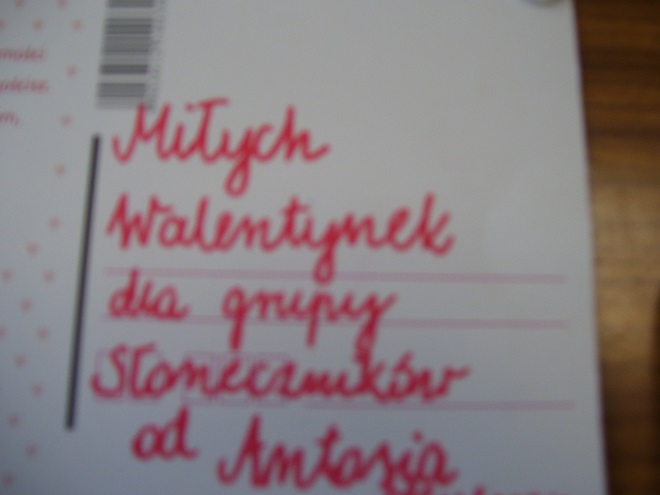 Miłych
Walentynek
dla grupy
Słoneczników
od Antosia